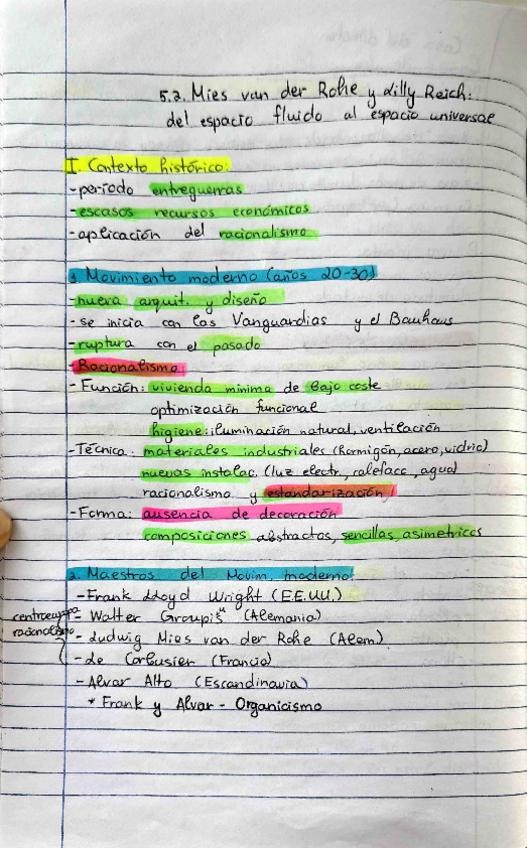 5.2. Mies van der Rohe y Lilly Reich:
del espacio fluido al espacio universal
I. Contexto histórico:
-período entreguerras
-escasos recursos económicos
-aplicación del racionalismo
1. Movimiento moderno (años 20-30)
-nueva arquit. y diseño
-se inicia con las Vanguardias y el Bauhaus
-ruptura con el pasado
-Racionalismo:
-Función: vivienda mínima de bajo coste
optimización funcional
higiene: iluminación natural, ventilación
-Técnica: materiales industriales (hormigón, acero, vidrio)
nuevas instalac. (luz electr., calefacc, agua)
racionalismo y estandarización
-Forma: ausencia de decoración
composiciones abstractas, sencillas, asimetricas
2. Maestros del Movim. moderno:
-Frank Lloyd Wright (E.E.UU.)
-Walter Groupis (Alemania)
centroeuropa
racionalismo
-Ludwig Mies van der Rohe (Alem)
-Le Corbusier (Francia)
-Alvar Alto (Escandinavia)
* Frank y Alvar - Organicismo